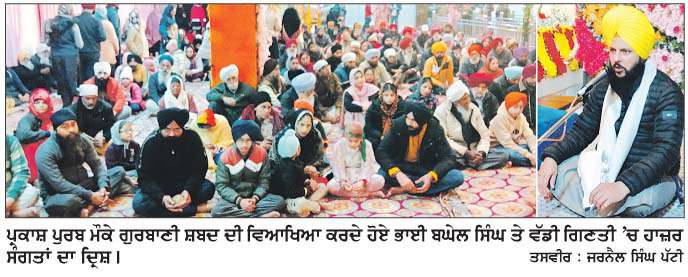 ਪ੍ਰਕਾਸ਼ ਪੁਰਬ ਮੌਕੇ ਗੁਰਬਾਣੀ ਸ਼ਬਦ ਦੀ ਵਿਆਖਿਆ ਕਰਦੇ ਹੋਏ ਭਾਈ ਬਘੇਲ ਸਿੰਘ ਤੇ ਵੱਡੀ ਗਿਣਤੀ ’ਚ ਹਾਜ਼ਰ
ਸੰਗਤਾਂ ਦਾ ਦ੍ਰਿਸ਼। ਤਸਵੀਰ : ਜਰਨੈਲ ਸਿੰਘ ਪੱਟੀ